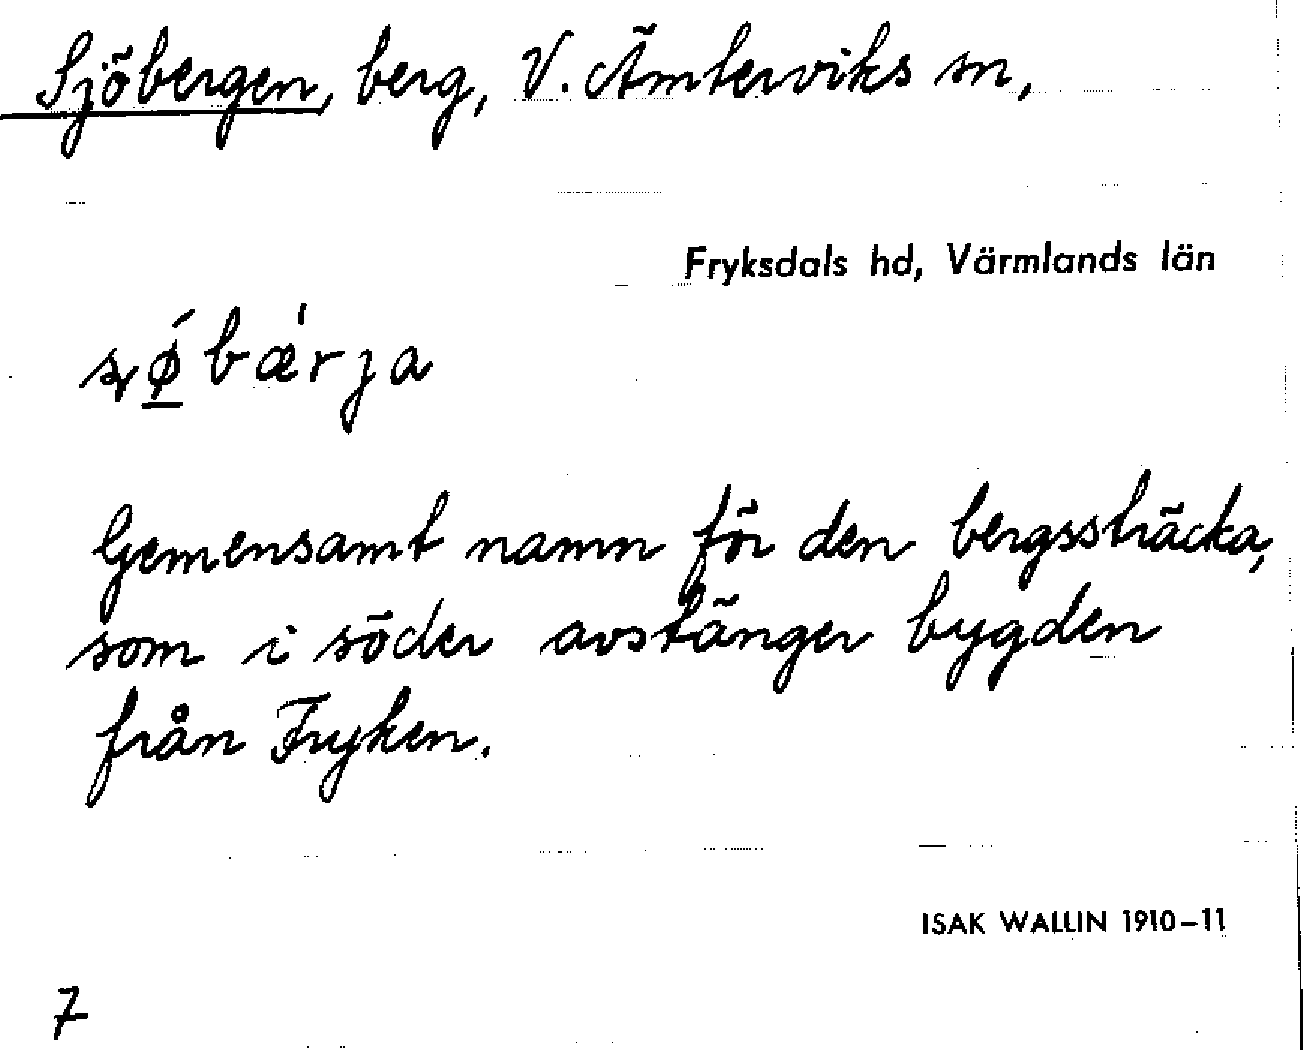 Sjöbergen, berg, V. Ämterviks sn,
Fryksdals hd, Värmlands län
bærja
Gemensamt namn för den bergssträcka,
som i söder avstänger bygden
från Fryken.
ISAK WALLIN 1910–11
7